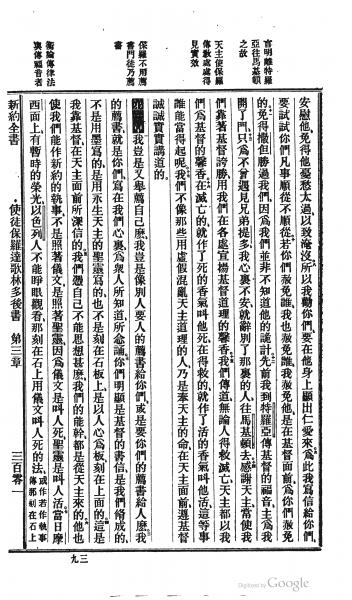 言明離特羅
亞往馬基頓
之故
天主使保羅
傳教處處得
見實效
保羅不用薦
書門徒乃薦
書
論傳律法
與傳福音者
安慰他免得他憂愁太過以致淪沒所以我勸你們要在他身上顯出仁愛來爲此我寫信給你們
要試試你們凡事順從不順從若你們赦免誰我也赦免誰我赦免他是在基督面前爲你們赦免
的免得撒但勝過我們因爲我們並非不知道他的詭計先前我到特羅亞傳基督的福音主爲我
開了門只爲不曾遇見兄弟提多我心裏不安就辭別了那裏的人往馬基頓去感謝天主常使我
們靠著基督誇勝用我們在各處宣揚基督道理的馨香我們傳道無論人得救滅亡天主都以我
們爲基督的馨香在滅亡的就作了死的香氣叫他死在得救的就作了活的香氣叫他活這等事
誰能當得起呢我們不像那些用虛假混亂天主道理的人乃是奉天主的命在天主面前遵基督
誠誠實實講道的
我豈是又舉薦自己麽我豈是像別人要人的薦書給你們或是要你們的薦書給人麽我
的薦書就是你們寫在我們心裏爲衆人所知道所念誦你們明顯是基督的書信是我們脩成的
不是用墨寫的是用永生天主的聖靈寫的也不是刻在石板上是以人心爲板刻在上面的這是
我靠基督在天主面前所深信的我們憑自己不能思想甚麽我們的能幹都是從天主來的他也
使我們能作新約的執事不是照著儀文是照著聖靈因爲儀文是叫人死聖靈是叫人活當日摩
西面上有暫時的榮光以色列人不能睜眼觀看那刻在石上用儀文叫人死的法或作若作執事
傳那刻在石上
新約全書 使徒保羅達歌林多後書 第三章 三百零一
三九
Digitized by Google